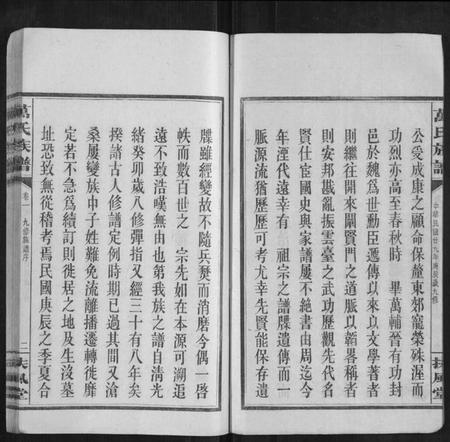 萬氏族譜
中華民國廿九年庚辰歲九修
扶風堂
公受成康之顧命保釐東郊寵榮殊渥而
功烈亦高至春秋時 畢萬輔晉有功封
邑於魏為世勳臣遞傳以來以文學著者
則繼往開來闡賢門之道脈以韜畧稱者
則安邦戡亂振雲臺之武功歷觀先代名
賢仕宦國史與家譜屢不絕書由周迄今
年湮代遠幸有 祖宗之譜牒遺傳而一
脈源流猶歷歷可考尤幸先賢能保存遺
牒雖經變故不隨兵燹而消磨今偶一啓
帙而數百世之 宗先如在本源可溯追
遠不致浩嘆無由也第我族之譜自清光
緒癸卯歲八修彈指又經三十有八年矣
揆諸古人修譜定例時期已過其間又滄
桑屢變族中子姓難免流離播遷轉徙靡
定若不急為續訂則徙居之地及生沒墓
址恐致無從稽考焉民國庚辰之季夏合
萬氏族譜
卷一
九修族譜序
二
扶風堂